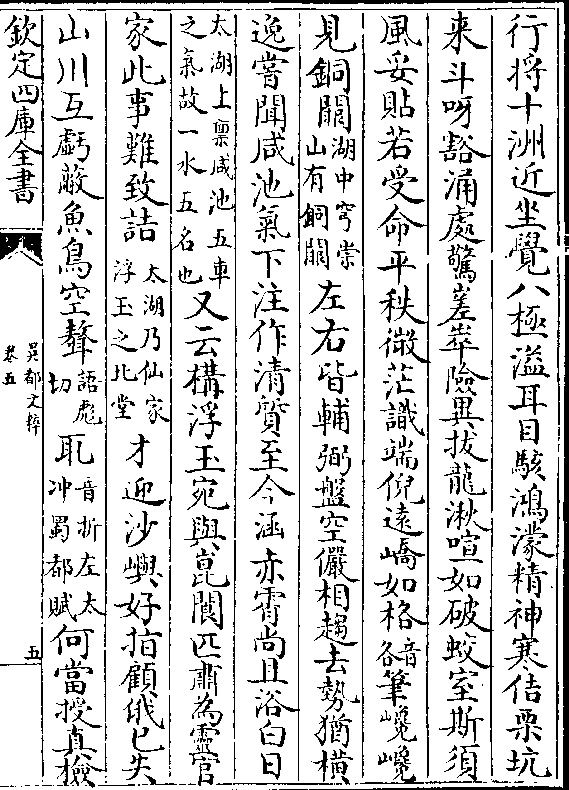 行將十洲近坐覺八極溢耳目駭鴻濛精神寒佶栗坑
来斗呀豁涌處驚嵳崒險異拔龍湫喧如破蛟室斯須
風妥貼若受命平秩微茫識端倪遠嶠如格音各筆巉巉
見銅闕湖中穹崇山有銅闕左右皆輔弼盤空儼相趨去勢猶橫
逸嘗聞咸池氣下注作清質至今涵赤霄尚且浴白日
太湖上禀咸池五車之氣故一水五名也又云構浮玉宛與崑閬匹肅為靈官
家此事難致詰太湖乃仙家浮玉之北堂才迎沙嶼好指顧俄已失
山川互虧蔽魚鳥空聱語彪切耴音折左太冲蜀都賦何當授真檢
欽定四庫全書
吳都文粹
卷五
五